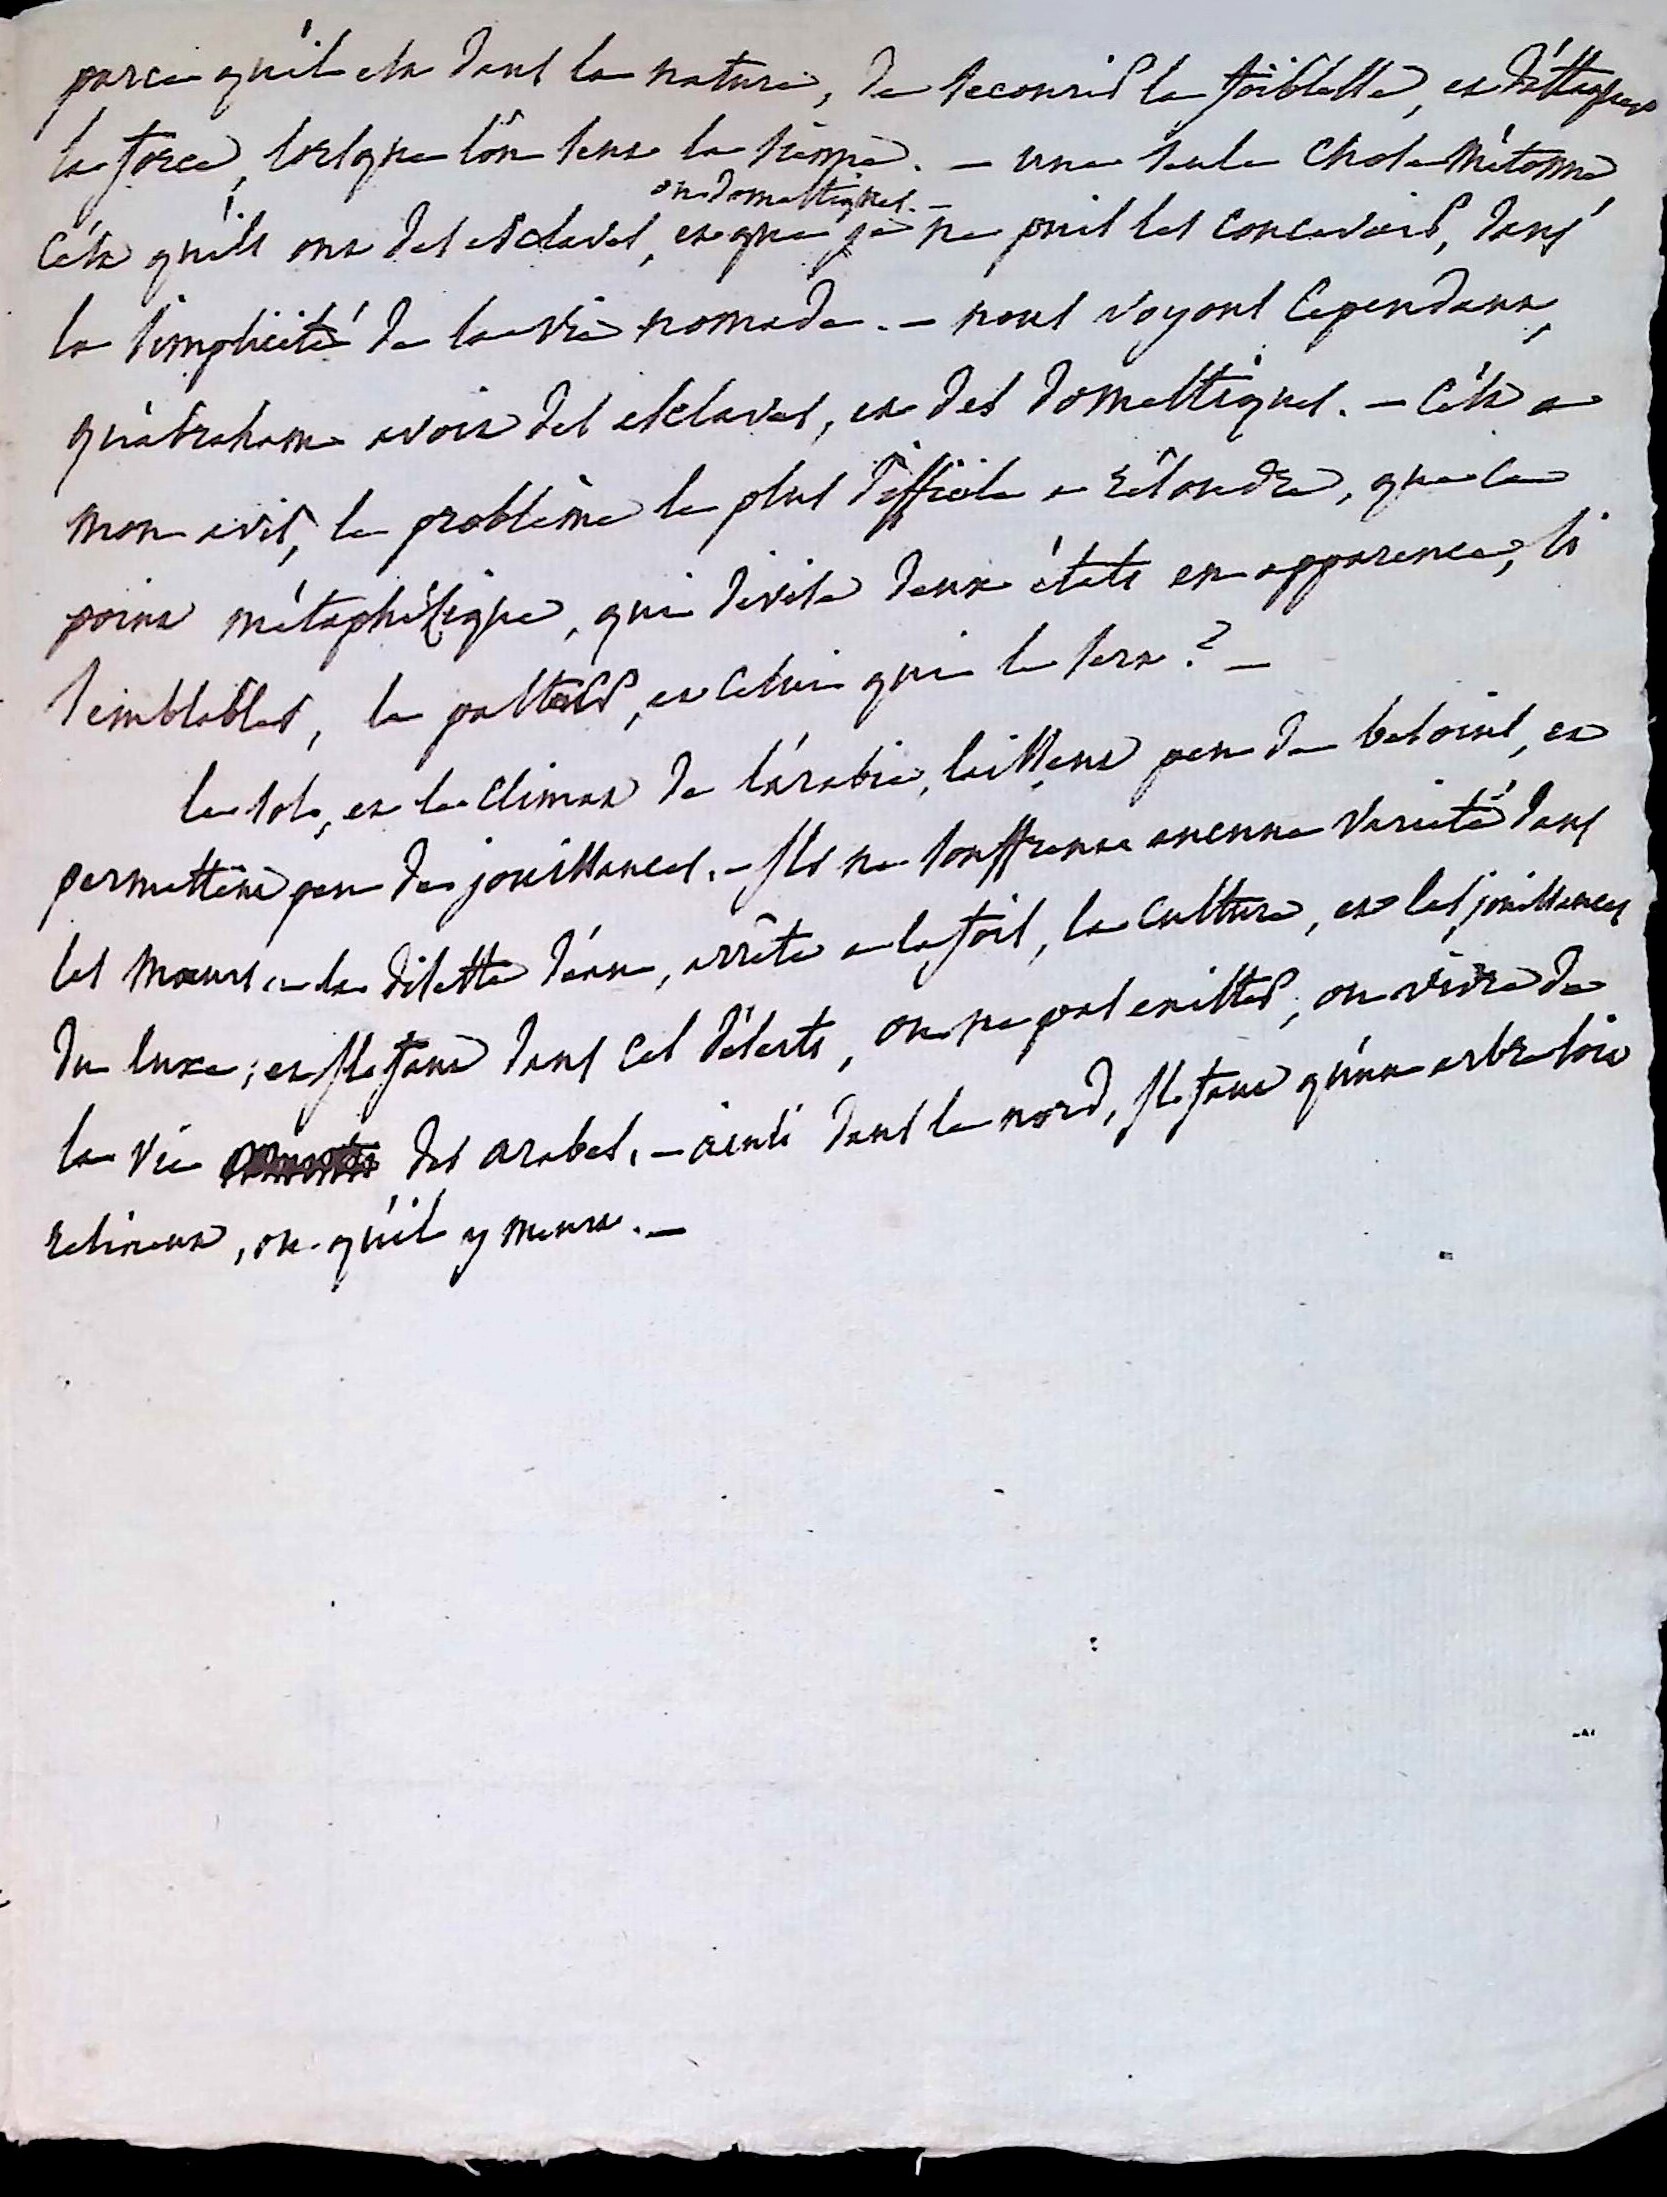 parce qu'il est dans la nature, de secourir la foiblesse, et d'attaquer
la force, lorsque l'ôn sent la sienne. – une seule chose m'étonne
ou domestiques. –
c'est qu'ils ont des esclaves, et que je ne puis les concevoir, dans
la simplicité de la vie nomade. – nous voyons cependant,
qu'abraham avoit des esclaves, et des domestiques. – c'est a
mon avis, le problême le plus difficile a résoudre, que le
point métaphésique, qui divise deux états en apparence, si
semblables, le pasteur, et celui qui le sert ? –
le sol, et le climat de l'arabie, laissent peu de besoins, et
permettent peu de jouissances. – Ils ne souffrent aucune varieté dans
les mœurs. – la disette d'eau, arrête a la fois, la culture, et les jouissances
du luxe ; et Il faut dans ces déserts, ou ne pas exister, ou vivre de
la vie des arabes. – ainsi dans le nord, Il faut qu'un arbre soit
resineux, ou qu'il y meure. –